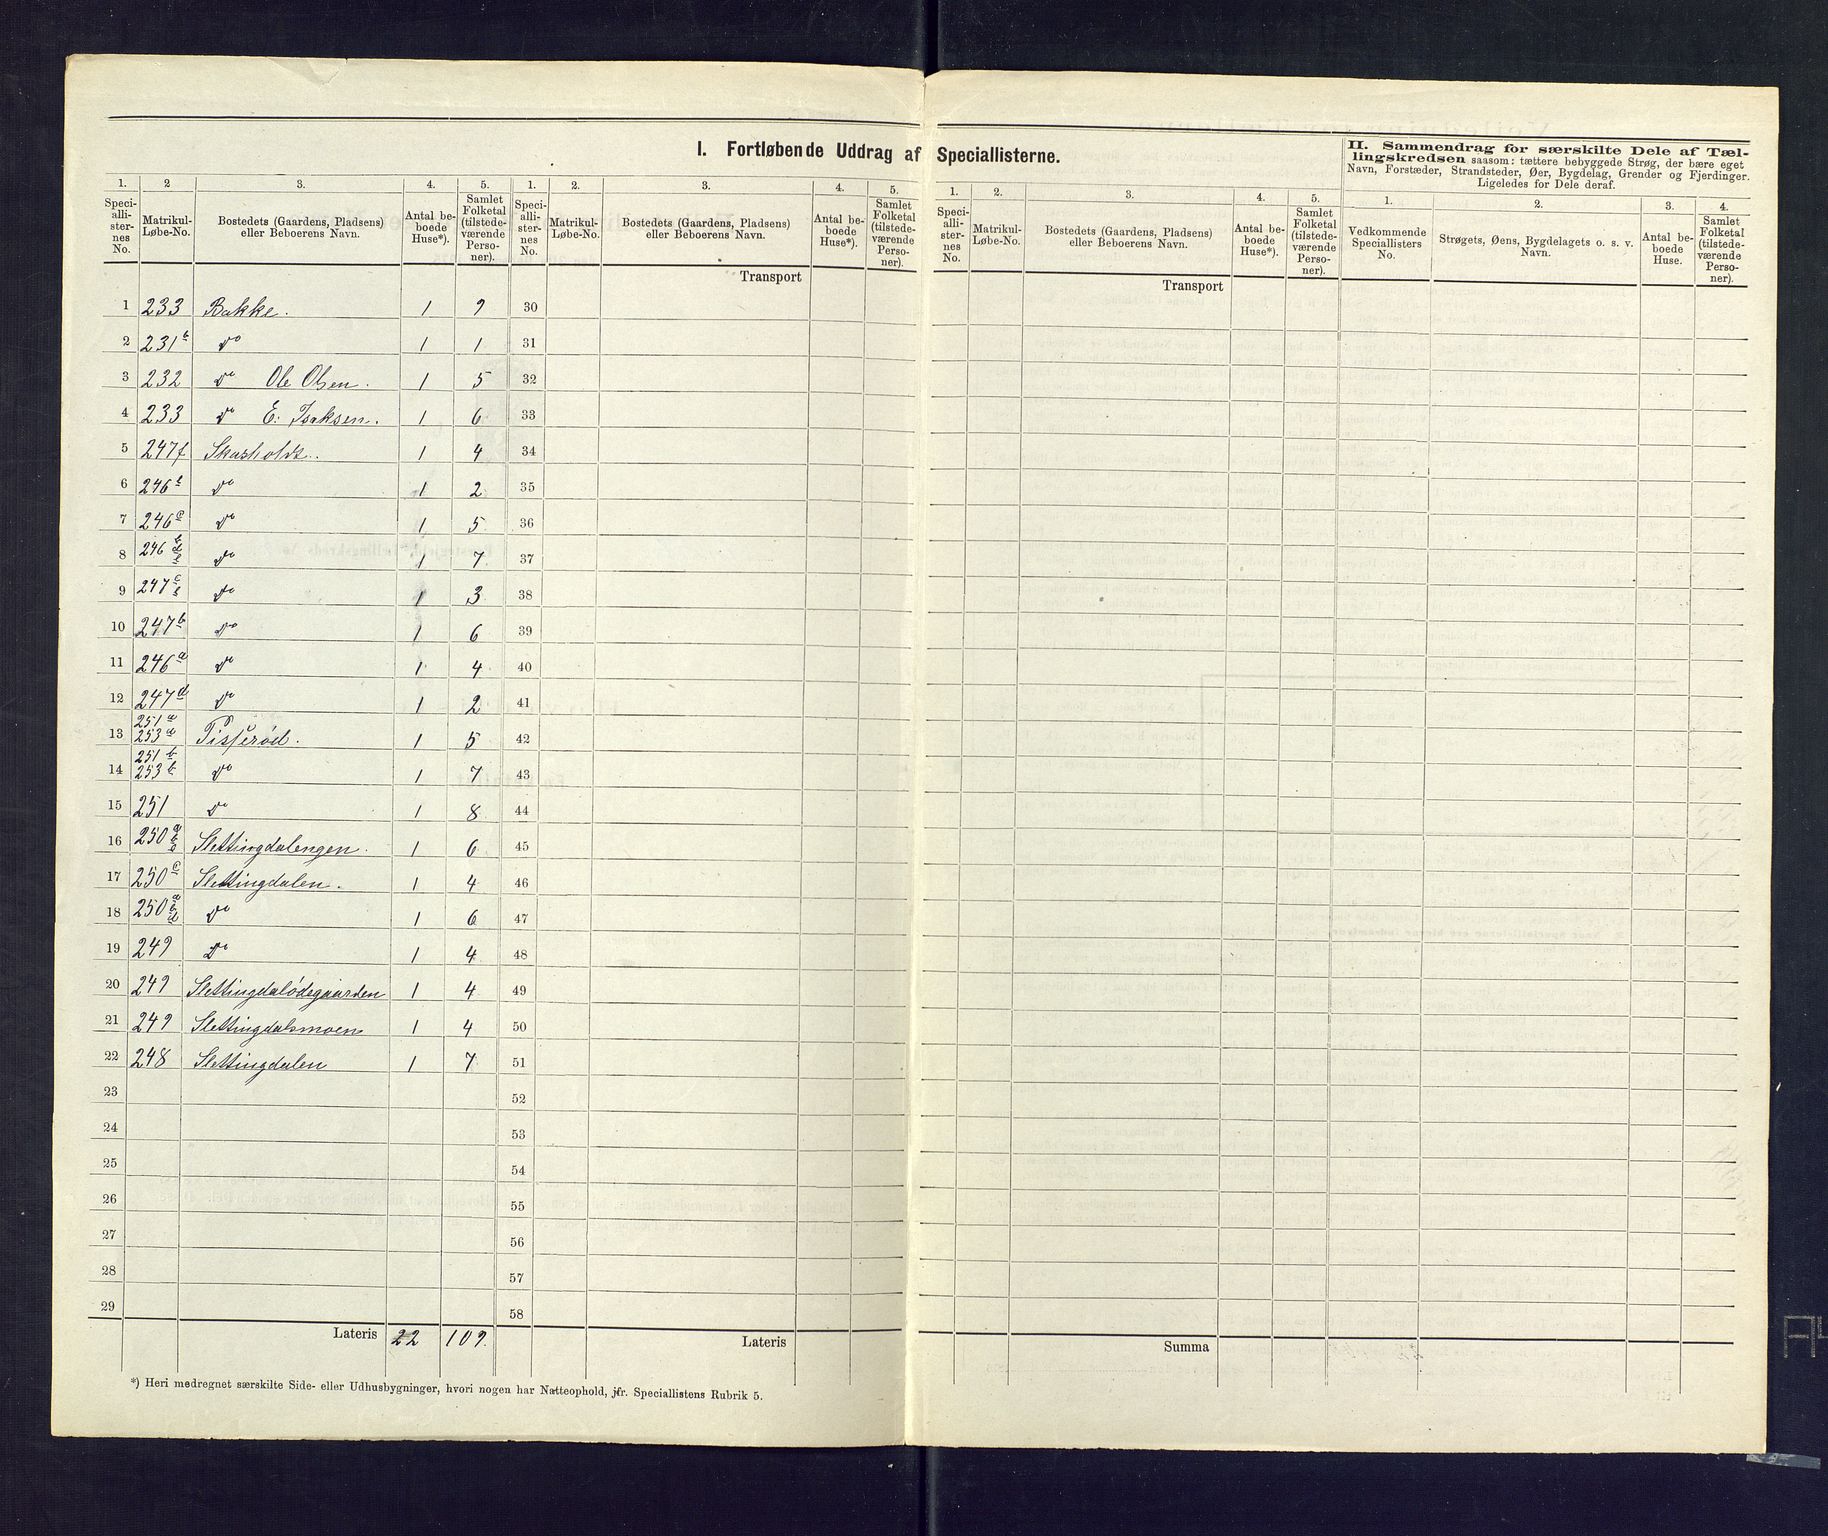 I. Fortløbende Uddrag af Speciallisterne.
II. Sammendrag for særskilte Dele af Tæl-
lingskredsen saasom: tættere bebyggede Strøg, der bære eget
Navn, Forstæder, Strandsteder, Øer, Bygdelag, Grender og Fjerdinger.
Ligeledes for Dele deraf.
1. 2 3. 4. 5. 1. 2. 3. 4. 5. 1. 2. 3. 4. 5. 1. 2. 3. 4.
Speci-alli-ster-nes No. Matrikul-Løbe-No. Bostedets (Gaardens, Pladsens) eller Beboerens Navn. Antal be-boede Huse*). Samlet Folketal (tilstede-værende Perso-ner).
Speci-alli-ster-nes No. Matrikul-Løbe-No. Bostedets (Gaardens, Pladsens) eller Beboerens Navn. Antal be-boede Huse*). Samlet Folketal (tilstede-værende Perso-ner).
Speci-alli-ster-nes No. Matrikul-Løbe-No. Bostedets (Gaardens, Pladsens) eller Beboerens Navn. Antal be-boede Huse*). Samlet Folketal (tilstede-værende Perso-ner).
Vedkommende Speciallisters No. Strøgets, Øens, Bygdelagets o. s. v. Navn. Antal be-boede Huse. Samlet Folketal (tilstede-værende Perso-ner).
Transport Transport
1 233 Bakke. 1 9 30
2 231 b do 1 1 31
3 232 do Ole Olsen. 1 5 32
4 233 do E. Isaksen. 1 6 33
5 247f Skusholdt. 1 4 34
6 246 do 1 2 35
7 246 c do 1 5 36
8 246 do 1 7 37
9 247 c do 1 3 38
10 247 b do 1 6 39
11 246 a do 1 4 40
12 247 d do 1 2 41
13 251 a 253 a Pisserød. 1 5 42
14 251 b 253 b do 1 7 43
15 251 do 1 8 44
16 250 a Slettingdalengen. 1 6 45
17 250 c Slettingdalen. 1 4 46
18 250 do 1 6 47
19 249 do 1 4 48
20 249 Slettingdalødegaarden 1 4 49
21 249 Slettingdalsmoen 1 4 50
22 248 Slettingdalen 1 7 51
23 52
24 53
25 54
26 55
27 56
28 57
29 58
Lateris 22 109. Lateris Summa
*) Heri medregnet særskilte Side- eller Udhusbygninger, hvori nogen har Natteophold, jfr. Speciallistens Rubrik 5.